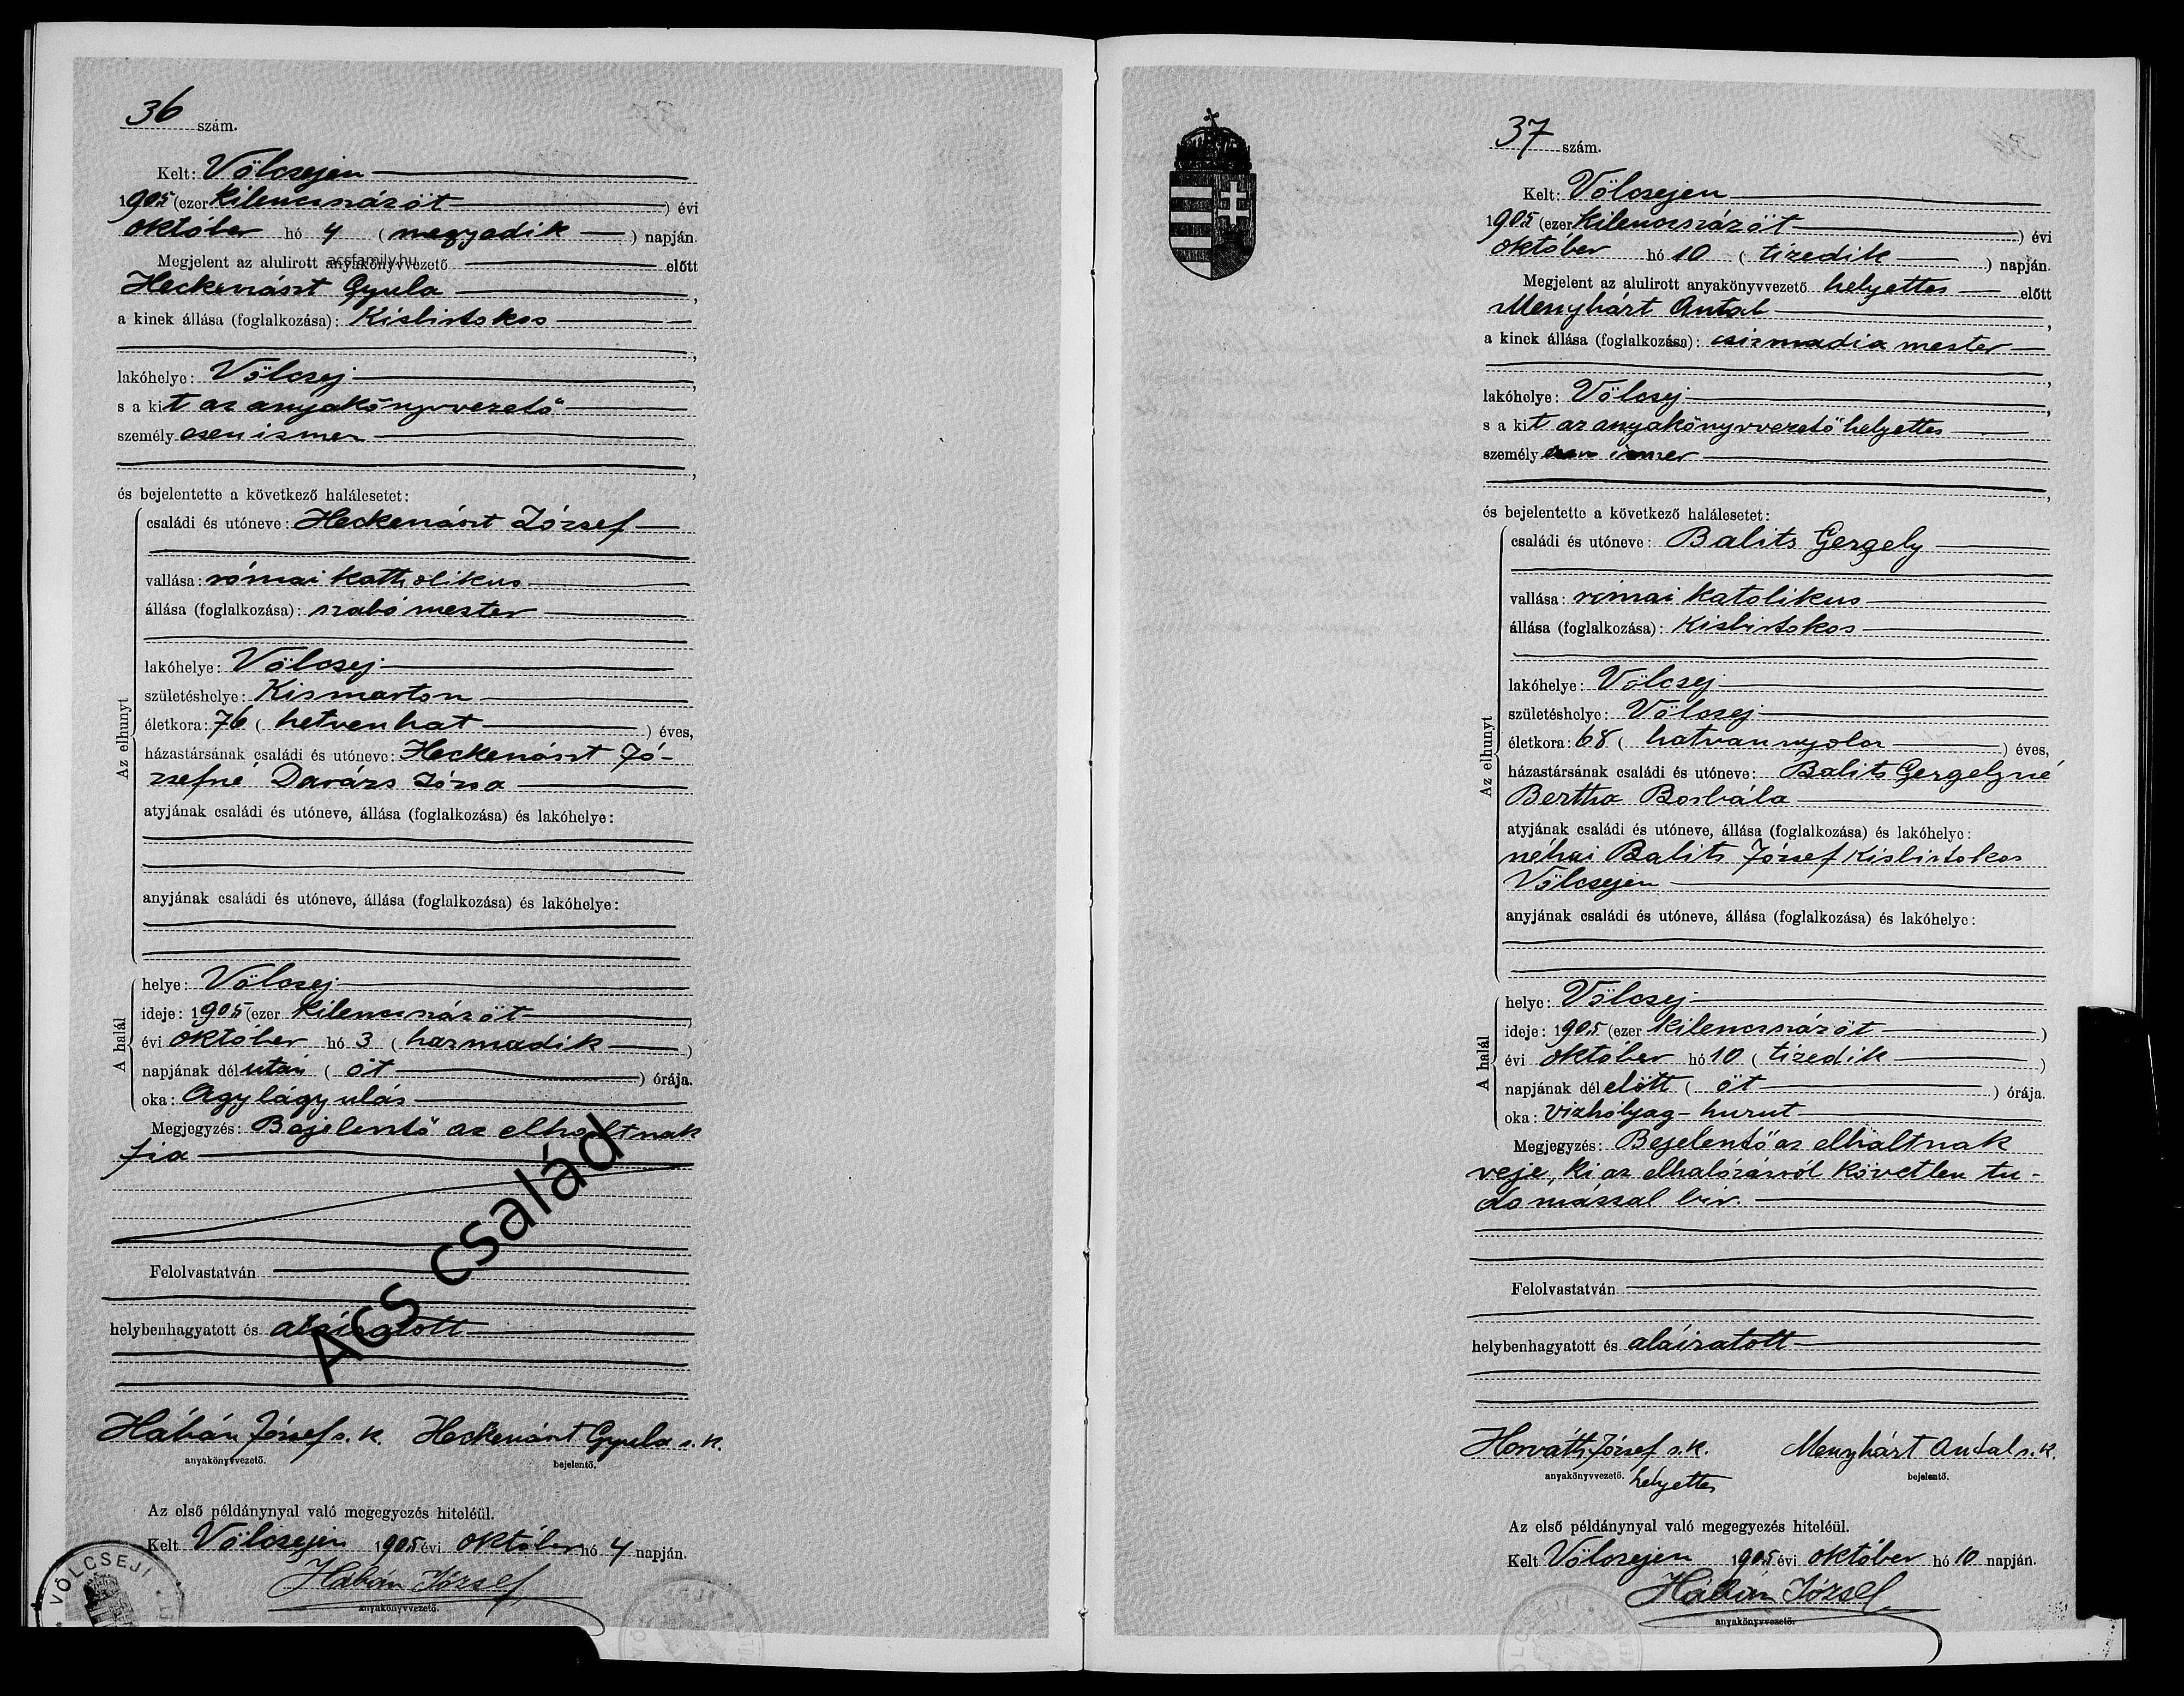 36 szám.
Kelt: Völcsejen
1905 (ezer kilencszázöt) évi
október hó 4 (negyedik) napján.
Megjelent az alulirott anyakönyvvezető előtt
acsfamily.hu
Heckenászt Gyula,
a kinek állása (foglalkozása): Kisbirtokos
lakóhelye: Völcsej,
s a kit az anyakönyvvezető
személyesen ismer
és bejelentette a következő halálesetet:
Az elhunyt
családi és utóneve: Heckenászt József
vallása: római katholikus
állása (foglalkozása): szabó mester
lakóhelye: Völcsej
születéshelye: Kismarton
életkora: 76 (hetvenhat) éves,
házastársának családi és utóneve: Heckenászt Jó-
zsefné Darázs Józsa
atyjának családi és utóneve, állása (foglalkozása) és lakóhelye:
anyjának családi és utóneve, állása (foglalkozása) és lakóhelye:
A halál
helye: Völcsej
ideje: 1905 (ezer kilencszázöt)
évi október hó 3 (harmadik)
napjának délután (öt) órája.
oka: Agylágyulás
Megjegyzés: Bejelentő az elhaltnak
fia
Ács család
Felolvastatván
helybenhagyatott és aláiratott
Hábán József s. k. Heckenászt Gyula s. k.
anyakönyvvezető. bejelentő.
Az első példánynyal való megegyezés hiteléül.
Kelt Völcsejen 1905 évi október hó 4 napján.
Hábán József
anyakönyvvezető.
VÖLCSEJI
37 szám.
Kelt: Völcsejen
1905 (ezer kilencszázöt) évi
október hó 10 (tizedik) napján.
Megjelent az alulirott anyakönyvvezető helyettes előtt
Menyhárt Antal,
a kinek állása (foglalkozása): csizmadia mester
lakóhelye: Völcsej,
s a kit az anyakönyvvezető helyettes
személyesen ismer
és bejelentette a következő halálesetet:
Az elhunyt
családi és utóneve: Balits Gergely
vallása: római katolikus
állása (foglalkozása): Kisbirtokos
lakóhelye: Völcsej
születéshelye: Völcsej
életkora: 68 (hatvannyolcz) éves,
házastársának családi és utóneve: Balits Gergelyné
Bertha Borbála
atyjának családi és utóneve, állása (foglalkozása) és lakóhelye:
néhai Balits József Kisbirtokos
Völcsejen
anyjának családi és utóneve, állása (foglalkozása) és lakóhelye:
A halál
helye: Völcsej
ideje: 1905 (ezer kilencszázöt)
évi október hó 10 (tizedik)
napjának délelőtt (öt) órája.
oka: vizhólyag-hurut
Megjegyzés: Bejelentő az elhaltnak
veje, ki az elhalozásról követlen tu-
domással bir.
Felolvastatván
helybenhagyatott és aláiratott
Horváth József s. k. Menyhárt Antal s. k.
anyakönyvvezető. helyettes bejelentő.
Az első példánynyal való megegyezés hiteléül.
Kelt Völcsejen 1905 évi október hó 10 napján.
Hábán József
anyakönyvvezető.